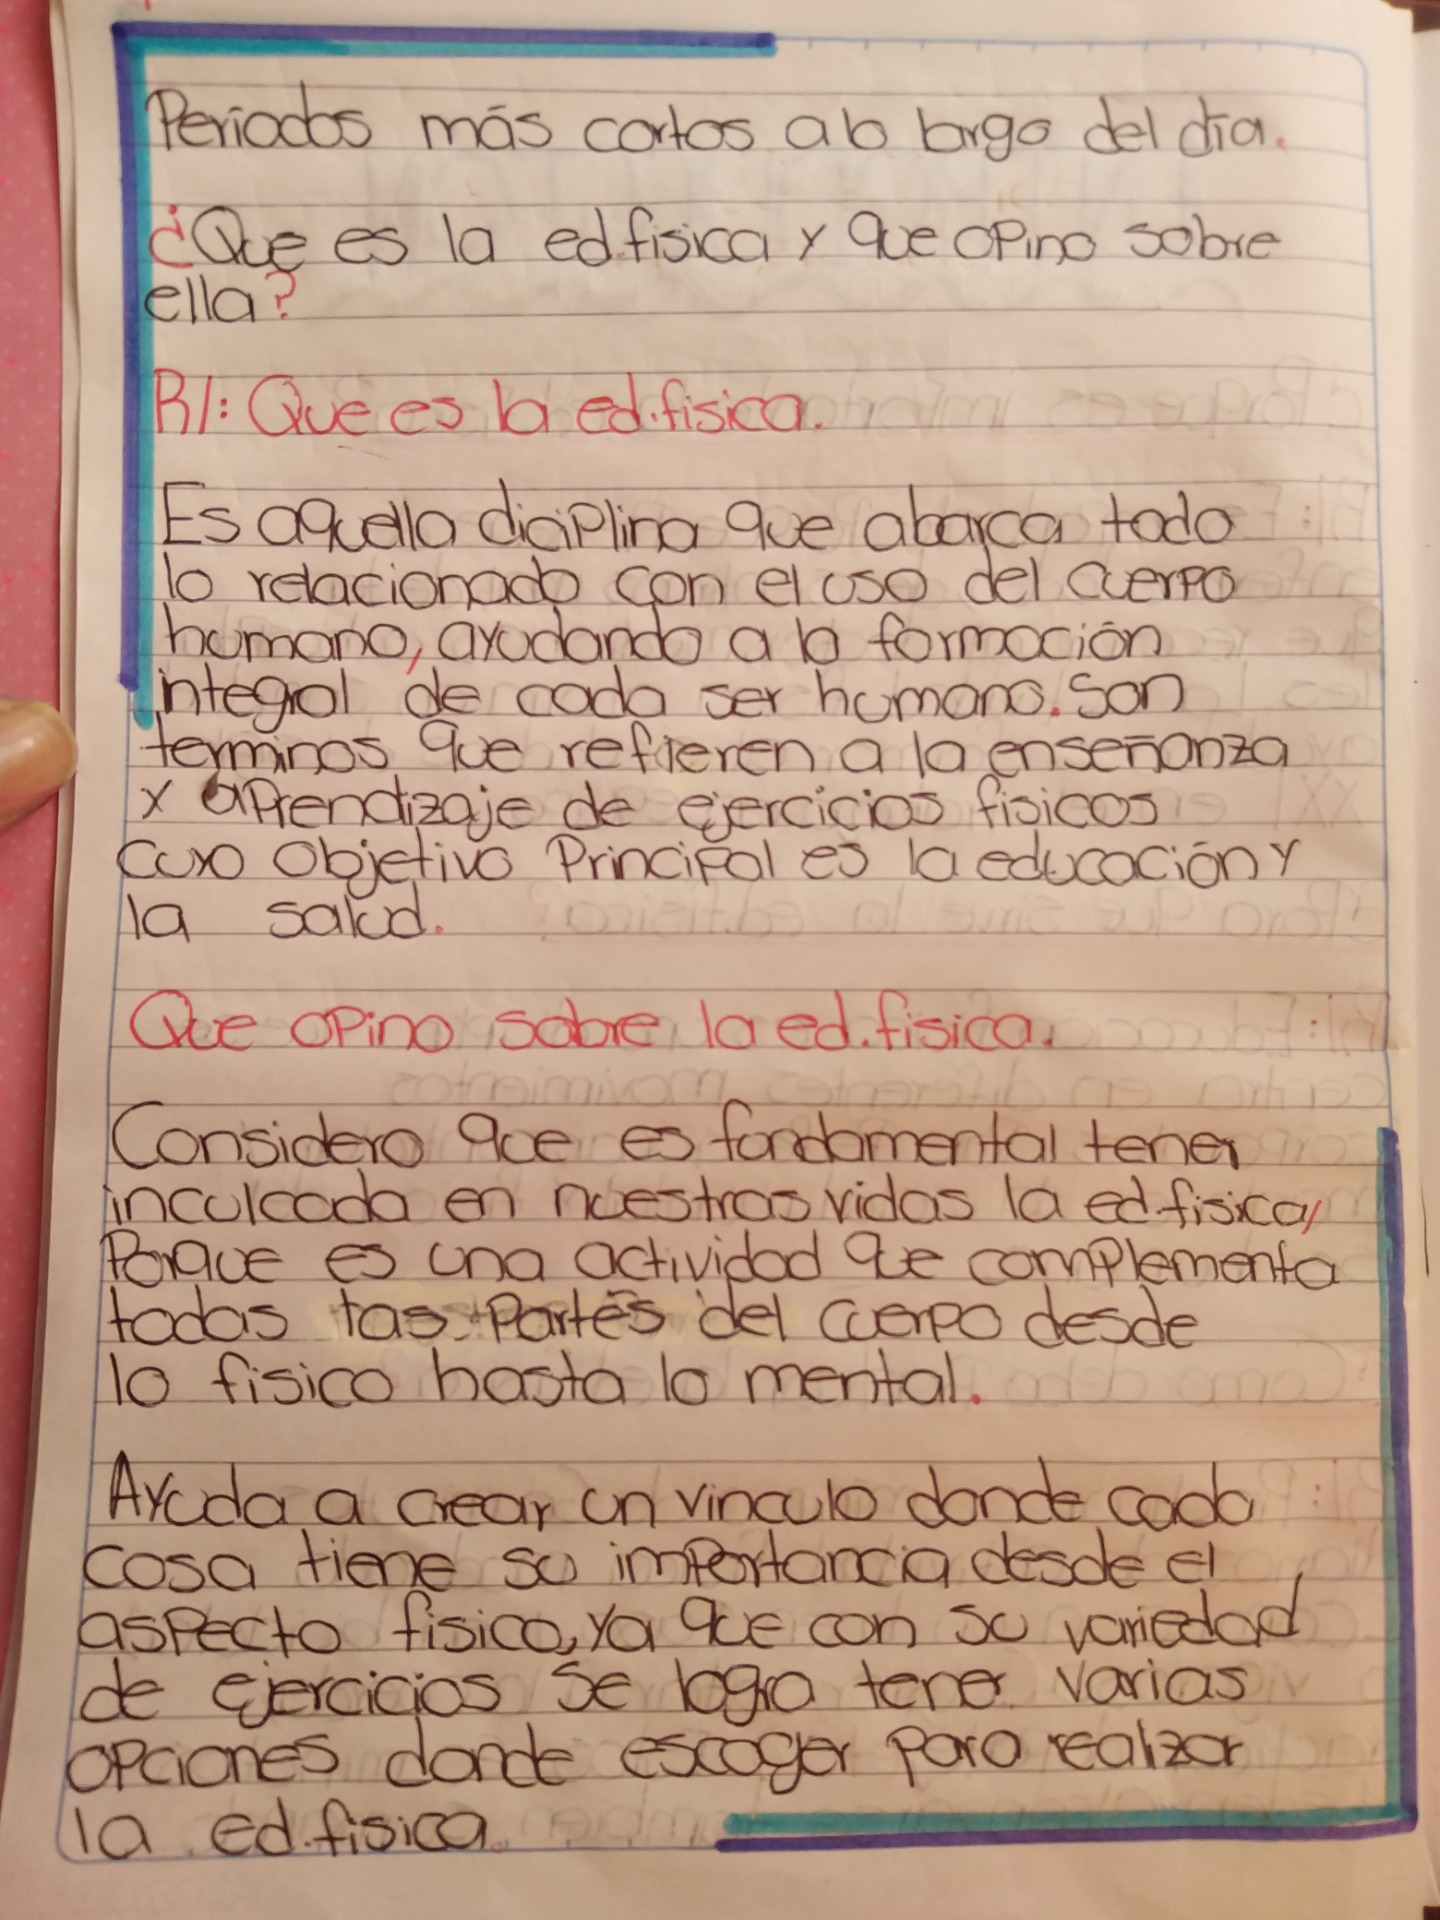 Periodos más cortos a lo largo del día.
¿Que es la ed.fisica y que opino sobre
ella?
R/: Que es la ed.fisica.
Es aquella diciplina que abarca todo
lo relacionado con el uso del cuerpo
humano, ayudando a la formación
integral de cada ser humano. Son
terminos que refieren a la enseñanza
y aprendizaje de ejercicios fisicos
cuyo objetivo Principal es la educación y
la salud.
Que opino sobre la ed.fisica.
Considero que es fundamental tener
inculcada en nuestras vidas la ed.fisica,
Porque es una actividad que complementa
todas las partes del cuerpo desde
lo fisico hasta lo mental.
Ayuda a crear un vinculo donde cada
cosa tiene su importancia desde el
aspecto fisico, ya que con su variedad
de ejercicios se logra tener varias
opciones donde escoger para realizar
la ed.fisica.